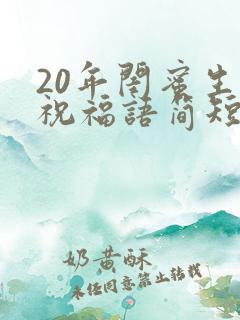 20年閨蜜生
祝福語简短
奶黄酥
未经同意禁止转载